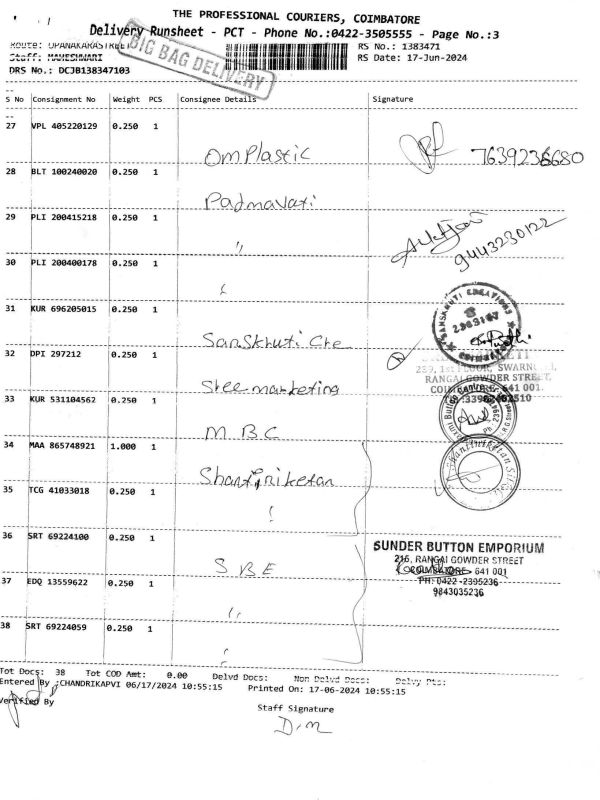 THE PROFESSIONAL COURIERS, COIMBATORE
Delivery Runsheet - PCT - Phone No.:0422-3505555 - Page No.:3
Route: UPANAKARASTREET
BIG BAG DELIVERY
RS No.: 1383471
Staff: MAHESHWARI
RS Date: 17-Jun-2024
DRS No.: DCJB138347103
S No Consignment No Weight PCS Consignee Details Signature
27 VPL 405220129 0.250 1
Om Plastic 7639236680
28 BLT 100240020 0.250 1
Padmavati
29 PLI 200415218 0.250 1
" 9443230122
30 PLI 200400178 0.250 1
31 KUR 696205015 0.250 1
SANSKRUTI CREATIONS
2303167
Sanskruti Cre
32 DPI 297212 0.250 1
239, 1st FLOOR, SWARN
RANGAI GOWDER STREET,
Shree marketing
COIMBATORE - 641 001.
33 KUR 531104562 0.250 1
M B C
34 MAA 865748921 1.000 1
Shantiniketan
35 TCG 41033018 0.250 1
36 SRT 69224100 0.250 1
SUNDER BUTTON EMPORIUM
216, RANGAI GOWDER STREET
S B E
COIMBATORE - 641 001
37 EDQ 13559622 0.250 1
PH: 0422 -2395236
9843035236
"
38 SRT 69224059 0.250 1
Tot Docs: 38 Tot COD Amt: 0.00 Delvd Docs: Non Delvd Docs: Delvy Pts:
Entered By :CHANDRIKAPVI 06/17/2024 10:55:15 Printed On: 17-06-2024 10:55:15
Verified By
Staff Signature